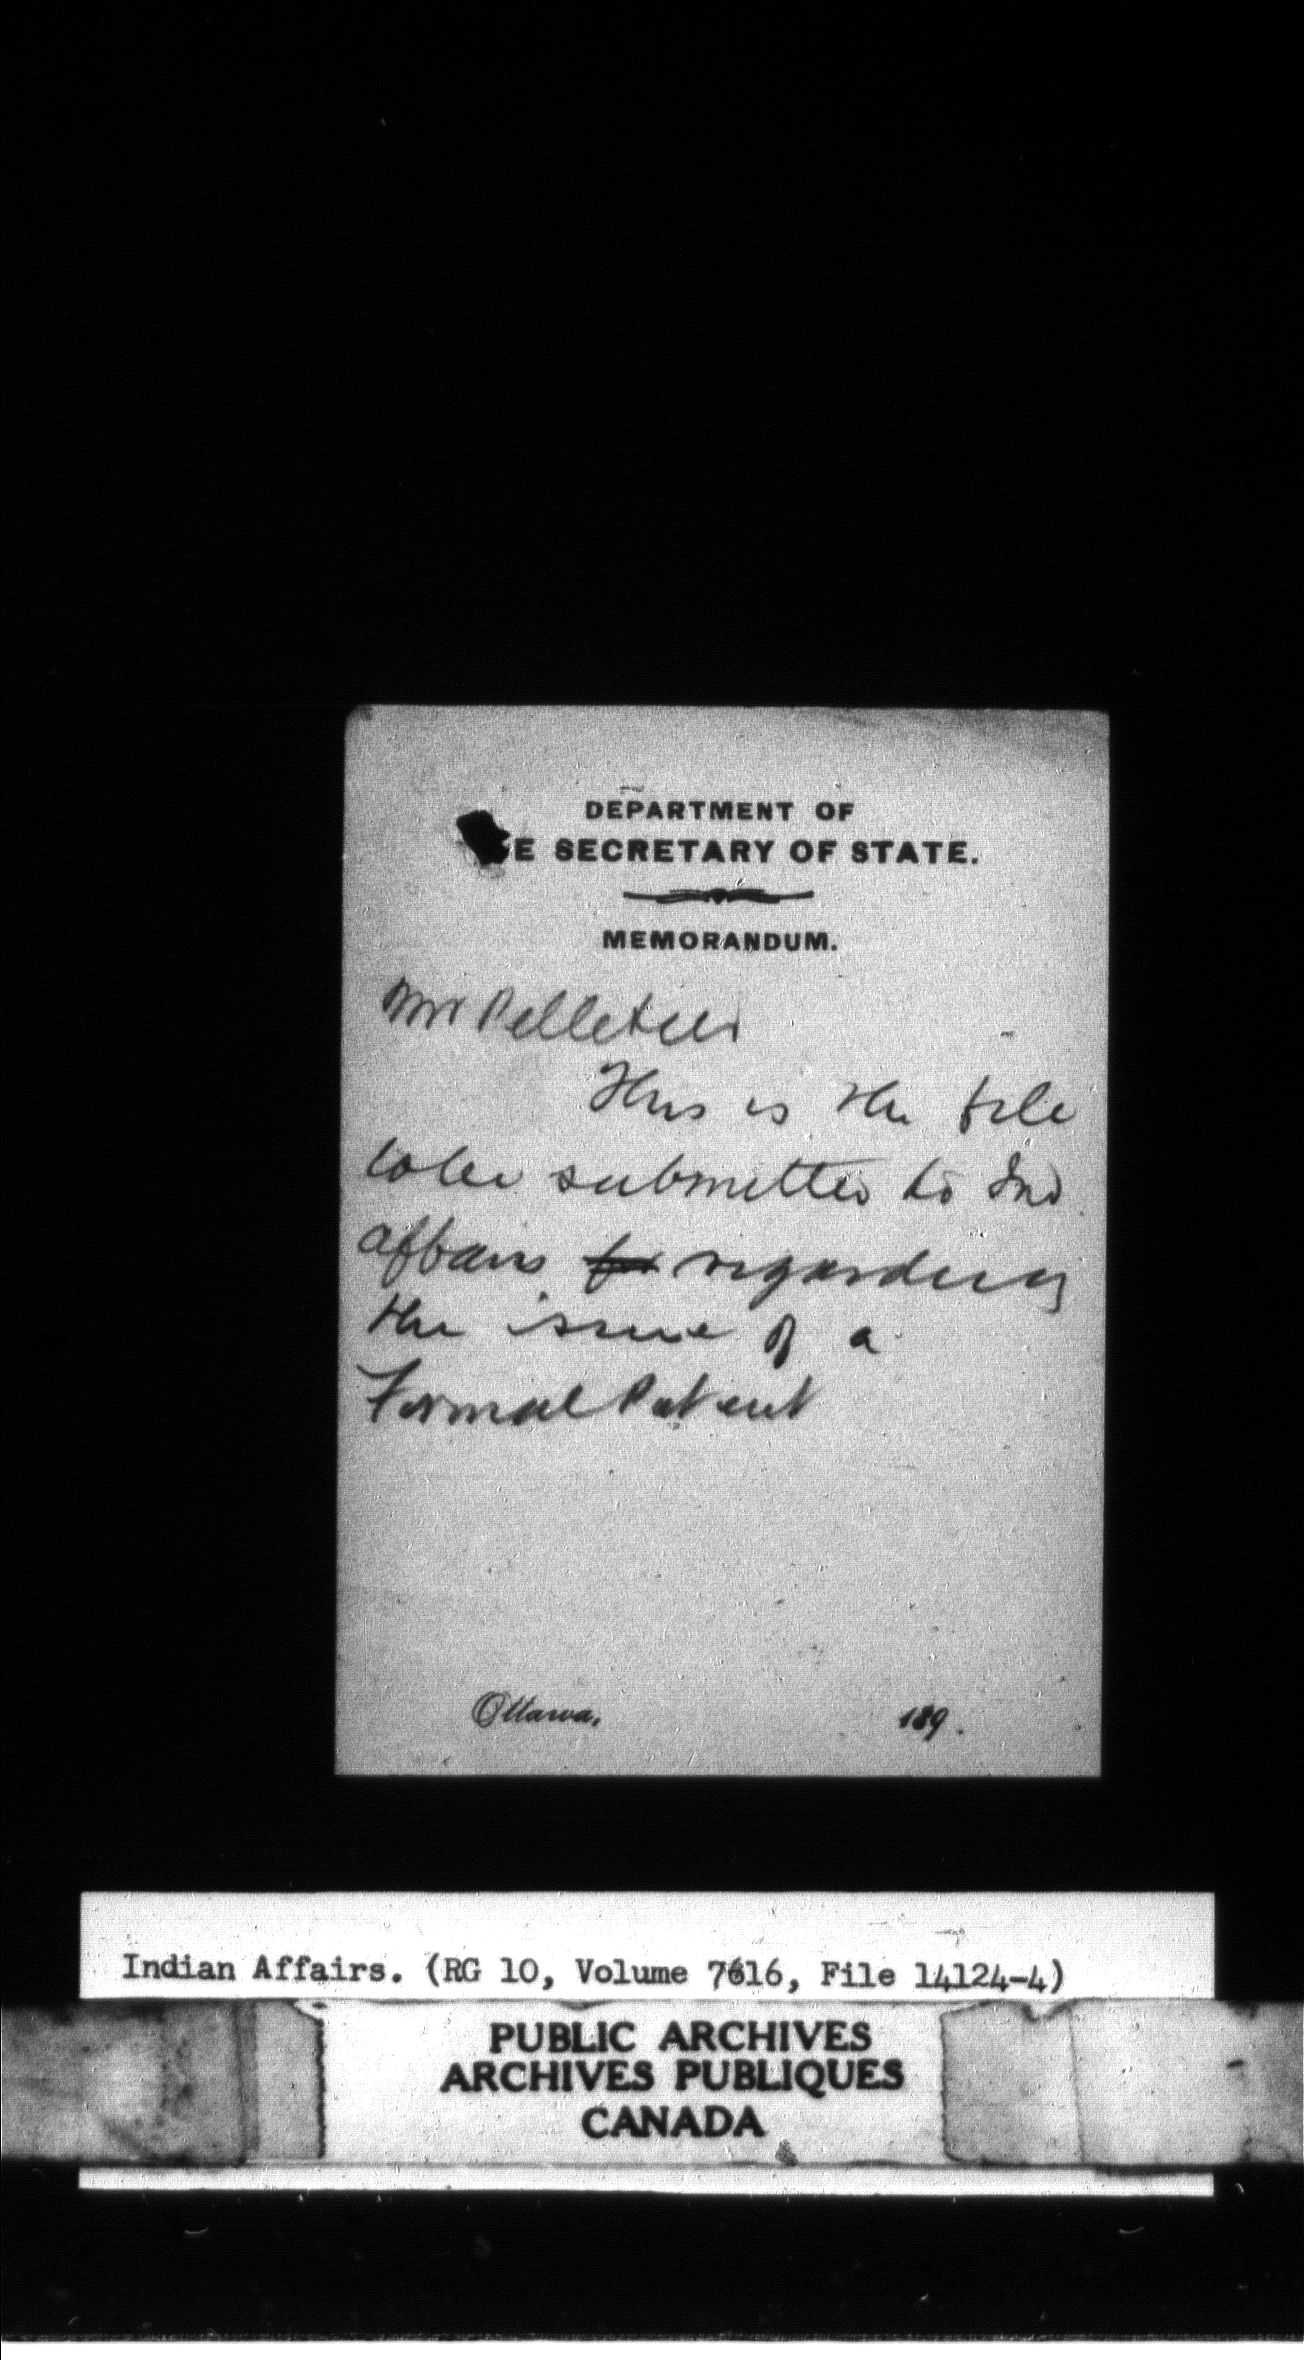 DEPARTMENT OF
E SECRETARY OF STATE.
MEMORANDUM.
Mr Pelletier
This is the file
to be submitted to Ind
affairs for regarding
the issue of a
Formal Patent
Ottawa, 189 .
Indian Affairs. (RG 10, Volume 7616, File 14124-4)
PUBLIC ARCHIVES
ARCHIVES PUBLIQUES
CANADA